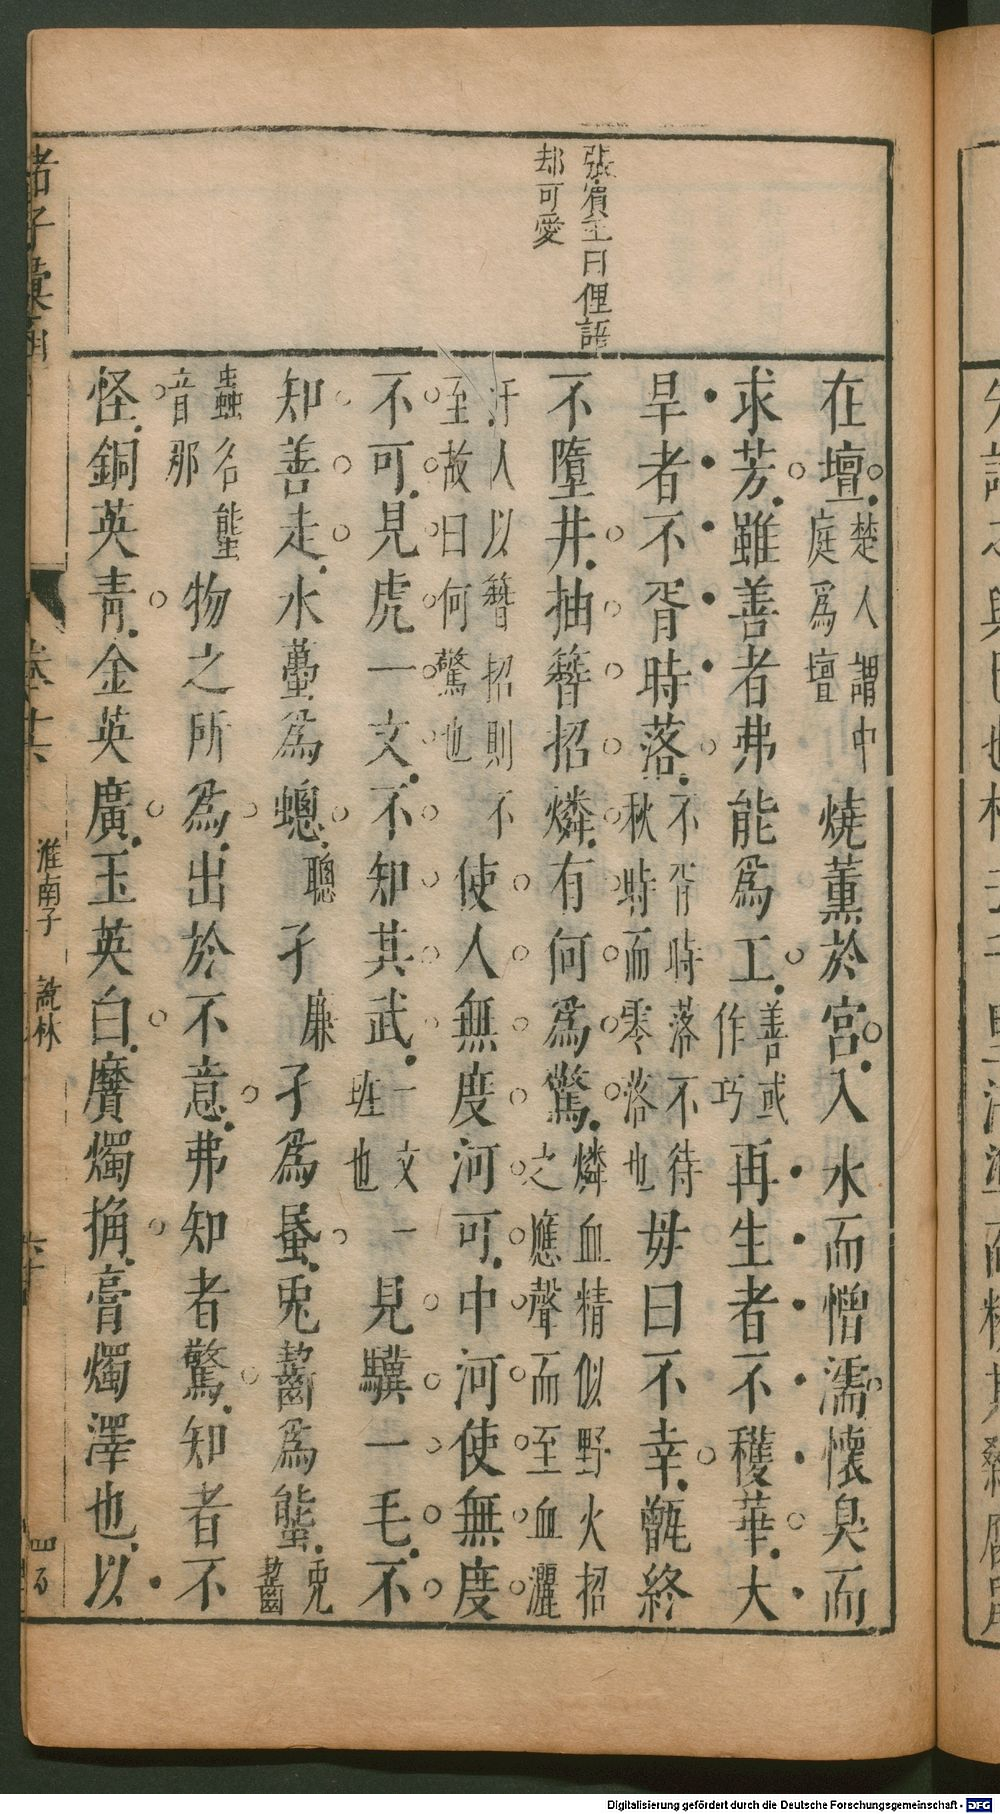 張賓王曰俚語
却可愛
在壇楚人謂中庭爲壇燒薫於宮入水而憎濡懷臭而
求芳雖善者弗能爲工善或作巧再生者不穫華大
旱者不胥時落不胥時落不待秋時而零落也毋曰不幸甑終
不墮井抽簪招燐有何爲驚燐血精似野火招之應聲而至血灑
汙人以簪招則不至故曰何驚也使人無度河可中河使無度
不可見虎一文不知其武見驥一毛不一文一班也
知善走水蠆爲蟌聰孑廉孑爲蟁兎齧爲螚兎齧
蟲名螚音那物之所爲出於不意弗知者驚知者不
怪銅英青金英廣玉英白黂燭捔膏燭澤也以
諸子彙函
卷十六
淮南子
說林
六十
四
先